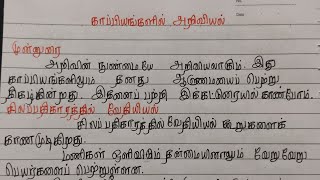 காப்பியங்களில் அறிவியல்
முன்னுரை
அறிவின் நுண்மையே அறிவியலாகும். இது
காப்பியங்களிலும் தனது ஆளுமையைப் பெற்று
திகழ்கின்றது. இதனைப் பற்றி இக்கட்டுரையில் காண்போம்.
சிலப்பதிகாரத்தில் வேதியியல்
சிலப்பதிகாரத்தில் வேதியியல் கூறுகளைக்
காணமுடிகிறது.
மணிகள் ஒளிவிடும் தன்மையினாலும் வேறுவேறு
பெயர்களைப் பெற்றுள்ளன.